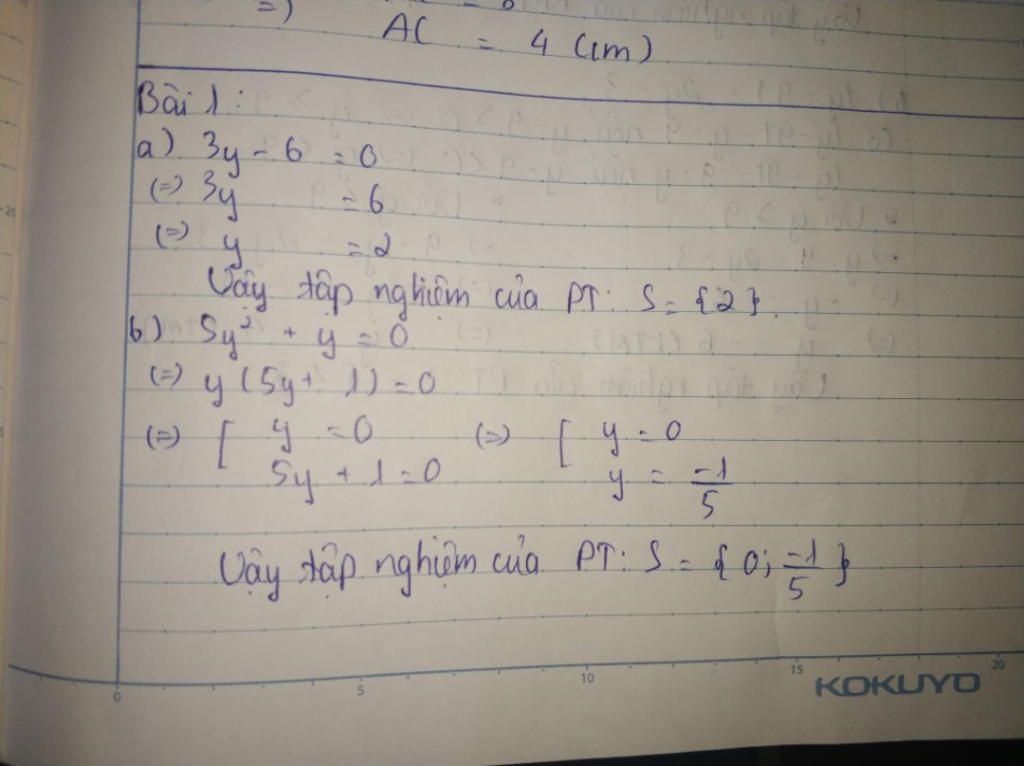 =)
AC = 4 (cm)
Bài 1:
a) 3y - 6 = 0
(=) 3y = 6
(=) y = 2
Vậy tập nghiệm của PT: S = {2}.
b) 5y² + y = 0
(=) y (5y + 1) = 0
(=) [ y = 0 (=) [ y = 0
5y + 1 = 0 y = -1/5
Vậy tập nghiệm của PT: S = {0; -1/5}
0 5 10 15 20
KOKUYO